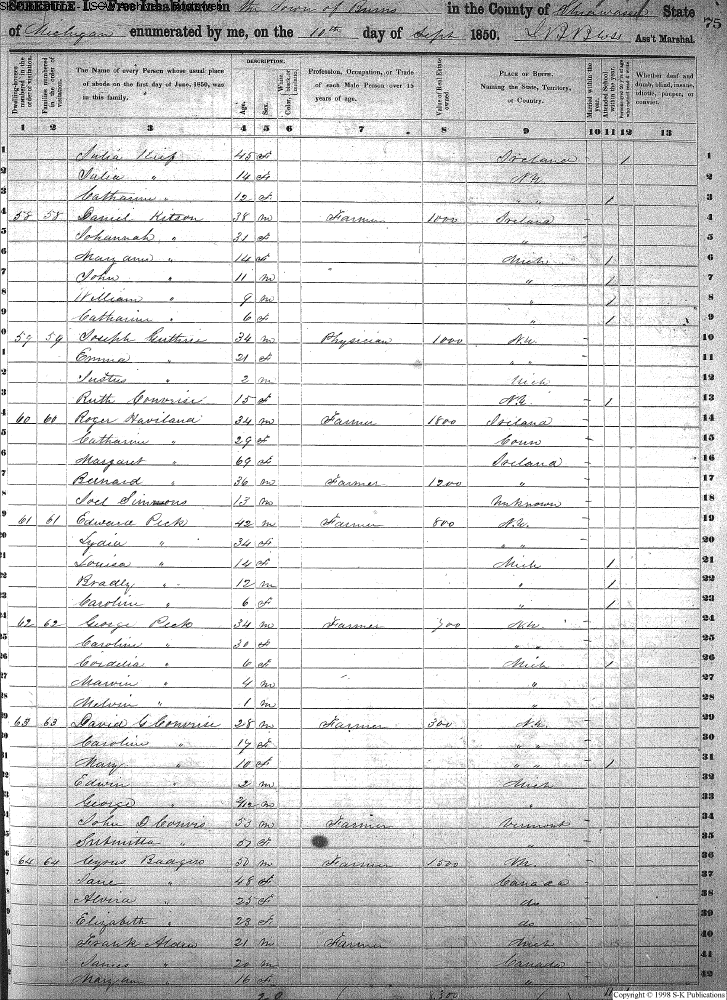 SCHEDULE I. Free Inhabitants in the Town of Burns in the County of Shiawassee State
of Michigan enumerated by me, on the 10th day of Sept 1850. Ass't Marshal. 75
Dwelling-houses numbered in the order of visitation.
Families numbered in the order of visitation.
The Name of every Person whose usual place of abode on the first day of June, 1850, was in this family.
DESCRIPTION.
Age.
Sex.
White, black, or mulatto.
Color,
Profession, Occupation, or Trade of each Male Person over 15 years of age.
Value of Real Estate owned.
PLACE OF BIRTH. Naming the State, Territory, or Country.
Married within the year.
Attended School within the year.
Whether deaf and dumb, blind, insane, idiotic, pauper, or convict.
1 2 3 4 5 6 7 8 9 10 11 12 13
1 Julia 45 f Ireland 1 1
2 Julia " 14 f 2
3 Catharine " 12 f " " 1 3
4 58 58 Daniel Kitson 38 m Farmer 1000 Ireland 4
5 Johannah " 31 f " 5
6 Mary ann " 14 f Mich 1 6
7 John " 11 m " 1 7
8 William " 9 m " 1 8
9 Catharine " 6 f " 1 9
10 59 59 Joseph Guthrie 34 m Physician 1000 N.Y. 10
11 Emma " 21 f " " 11
12 Justus " 2 m Mich 12
13 Ruth Converse 15 f N.Y. 1 13
14 60 60 Roger Haviland 34 m Farmer 1800 Ireland 14
15 Catharine " 29 f Conn 15
16 Margaret " 69 f Ireland 16
17 Bernard " 36 m Farmer 1200 " 17
18 Joel Simmons 13 m Unknown 18
19 61 61 Edward Peck 42 m Farmer 800 N.Y. 19
20 Lydia " 34 f " " 20
21 Louisa " 14 f Mich 1 21
22 Bradly " 12 m " 1 22
23 Caroline " 6 f " 1 23
24 62 62 George Peck 34 m Farmer 700 N.Y. 24
25 Caroline " 30 f " " 25
26 Cordelia " 6 f Mich 1 26
27 Marvin " 4 m " 27
28 Melvin " 1 m " 28
29 63 63 David G Converse 28 m Farmer 300 N.Y. 29
30 Caroline " 17 f " " 30
31 Mary " 10 f " " 1 31
32 Edwin " 2 m Mich 32
33 George " m " 33
34 John D 53 m Farmer Vermont 34
35 " 57 f " 35
36 64 64 Cyrus 50 m Farmer 1500 N.Y. 36
37 Jane " 48 f Canada 37
38 Alvira " 25 f do 38
39 Elizabeth " 23 f do 39
40 Frank Alden 21 m Farmer Mich 40
41 James " 20 m Canada 41
42 Mary ann " 16 f " 42
8,300
Copyright © 1998 S-K Publications